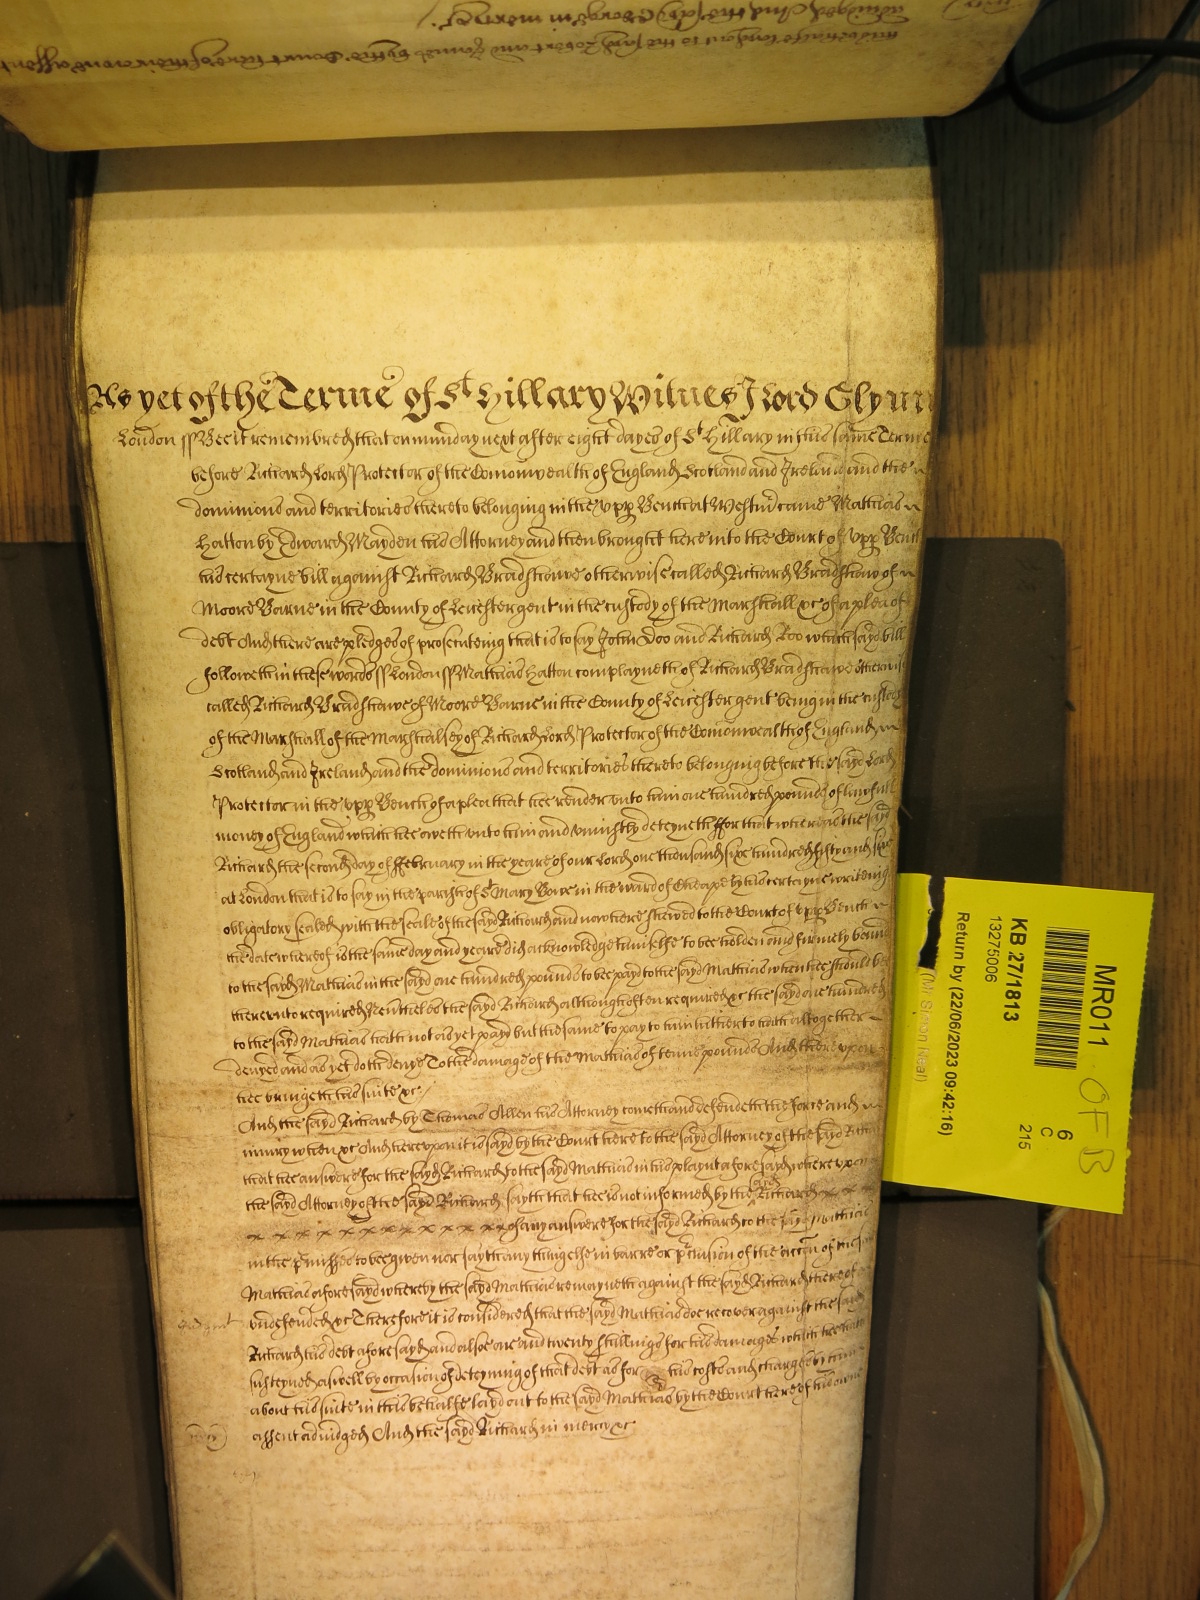 As yet of the Terme of St Hillary Witnes J Lord Glynn
London ss Bee it remembred that on munday next after eight dayes of St Hillary in this same Terme
before Richard Lord Protector of the Comonwealth of England Scotland and Ireland and the
dominions and territories thereto belonging in the upp Bench at Westm came Mathias
Hatton by Edward Mayden his Attorney and then brought here into the Court of upp Bench
his certayne bill against Richard Bradshawe otherwise called Richard Bradshaw of
Moore Barne in the County of Leicester gent in the custody of the Marshall &c of a plea of
debt And there are pledges of prosecuteing that is to say John Doo and Richard Roo which sayd bill
followeth in these words ss London ss Mathias Hatton complayneth of Richard Bradshawe otherwise
called Richard Bradshawe of Moore Barne in the County of Leicester gent being in the custody
of the Marshall of the Marshalsey of Richard Lord Protector of the Comonwealth of England
Scotland and Ireland and the dominions and territories thereto belonging before the sayd Lord
Protector in the upp Bench of a plea that hee render unto him one hundred pounds of lawfull
money of England which hee oweth unto him and uniustly deteyneth ffor that whereas the sayd
Richard the second day of ffebruary in the yeare of our Lord one thousand six hundred fifty and six
at London that is to say in the parish of St Mary Bowe in the ward of Cheape by his certayne writeing
obligatory sealed with the seale of the sayd Richard and now here shewed to the Court of upp Bench
the date whereof is the same day and yeare did acknowledge himselfe to bee holden and firmely bound
to the sayd Mathias in the sayd one hundred pounds to bee payd to the sayd Mathias when hee should bee
thereunto required Neuthelesse the sayd Richard although often required &c the sayd one hundred
to the sayd Mathias hath not as yet payd but the same to pay to him hitherto hath altogether
denyed and as yet doth denye To the damage of the Mathias of tenne pounds And thereupon
hee bringeth his suite &c
And the sayd Richard by Thomas Allen his Attorney cometh and defendeth the force and
iniury when &c And hereupon it is sayd by the Court here to the sayd Attorney of the sayd Richard
that hee answere for the sayd Richard to the sayd Mathias in his playnt aforesayd whereupon
the sayd Attorney of the sayd Richard sayth that hee is not informed by the sayd Richard
of any answere for the sayd Richard to the sayd Mathias
in the pmisses to bee given nor sayth any thing else in barre or pclusion of the accon of the sayd
Mathias aforesayd whereby the sayd Mathias remayneth against the sayd Richard thereof
undefended &c Therefore it is considered that the sayd Mathias doe recover against the sayd
Richard his debt aforesayd and alsoe one and twenty shillings for his damages which hee hath
susteyned aswell by occasion of deteyning of that debt as for his costs and charges by him
about his suite in this behalfe layd out to the sayd Mathias by the Court here of his owne
assent adiudged And the sayd Richard in mercy &c
MR011
6
C
215
KB 27/1813
13275006
Return by (22/06/2023 09:42:16)
OFB